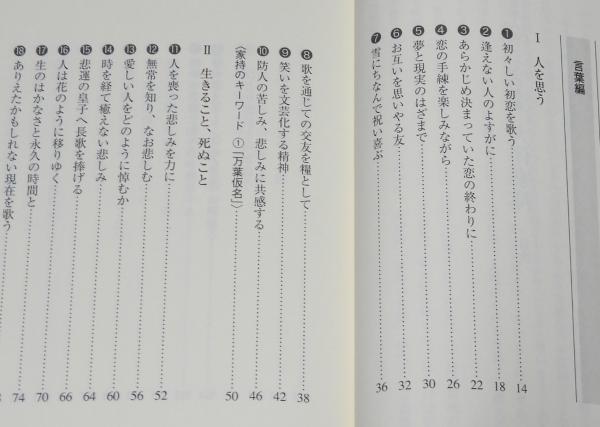 言葉編
Ⅰ 人を思う
❶ 初々しい初恋を歌う……14
❷ 逢えない人のよすがに……18
❸ あらかじめ決まっていた恋の終わりに……22
❹ 恋の手練を楽しみながら……26
❺ 夢と現実のはざまで……30
❻ お互いを思いやる友……32
❼ 雪にちなんで祝い喜ぶ……36
❽ 歌を通じての交友を糧として……38
❾ 笑いを文芸化する精神……42
❿ 防人の苦しみ、悲しみに共感する……46
〈家持のキーワード ①「万葉仮名」〉……50
Ⅱ 生きること、死ぬこと
⓫ 人を喪った悲しみを力に……52
⓬ 無常を知り、なお悲しむ……56
⓭ 愛しい人をどのように悼むか……60
⓮ 時を経て癒えない悲しみ……64
⓯ 悲運の皇子へ長歌を捧げる……64
⓰ 人は花のように移りゆく……66
⓱ 生のはかなさと永久の時間と……70
⓲ ありえたかもしれない現在を歌う……74